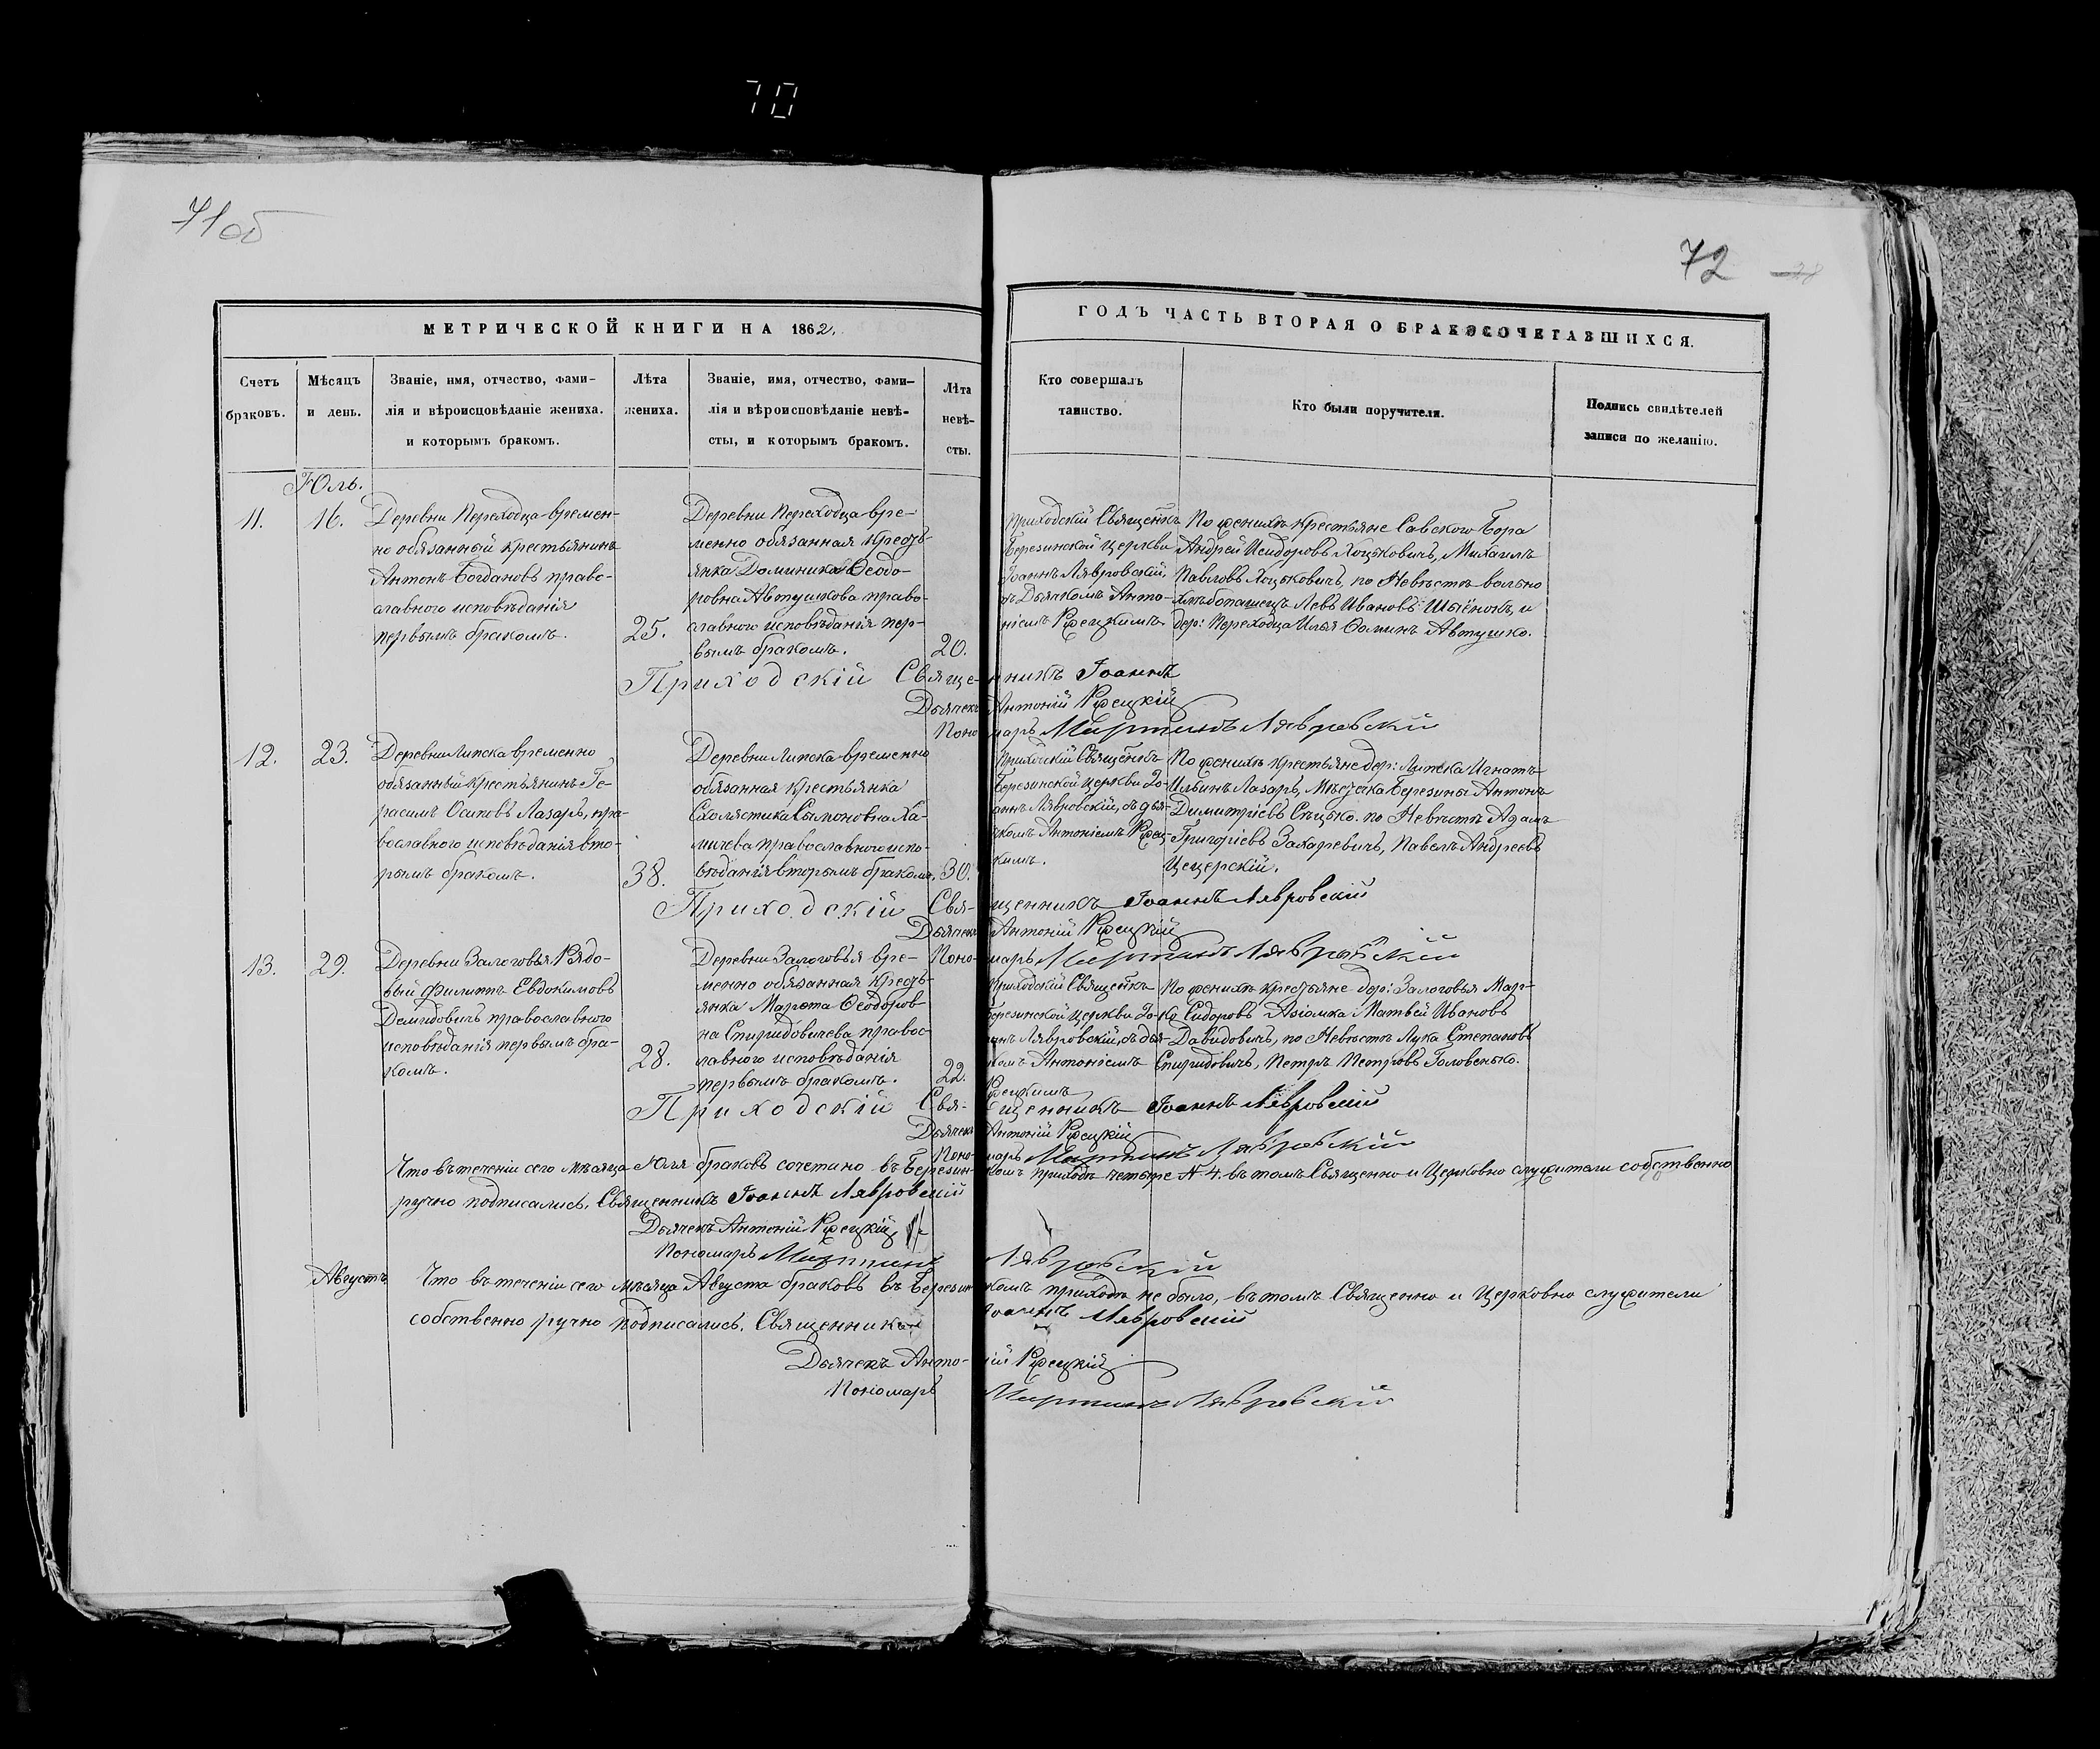 70
71об
72
28
МЕТРИЧЕСКОЙ КНИГИ НА 1862.
ГОДЪ ЧАСТЬ ВТОРАЯ О БРАКОСОЧЕТАВШИХСЯ.
Счетъ
браковъ.
Мѣсяцъ
и день.
Званіе, имя, отчество, фами-
лія и вѣроисповѣданіе жениха.
и которымъ бракомъ.
Лѣта
жениха.
Званіе, имя, отчество, фами-
лія и вѣроисповѣданіе невѣ-
сты, и которымъ бракомъ.
Лѣта
невѣ-
сты.
Кто совершалъ
таинство.
Кто были поручители.
Подпись свидѣтелей
записи по желанію.
Юль.
11.
16.
Деревни Переходца времен-
но обязанный крестьянинъ
Антонъ Богдановъ право-
славного исповѣданія
первымъ бракомъ.
25.
Деревни Переходца вре-
менно обязанная кресть-
янка Доминика Ѳеодо-
ровна Автушкова право-
славного исповѣданія пер-
вымъ бракомъ.
20.
Приходскій Священикъ
Березинской церкви
Іоаннъ Лявровскій,
съ Дьячкомъ Анто-
ніемъ Ржецкимъ
По женихѣ крестьяне Савского Бора
Андрей Исидоровъ Хоцьковичъ, Михаилъ
Павловъ Хоцьковичъ, по Невѣстѣ вольно
хлѣбопашецъ Левъ Ивановъ Шыёнокъ, и
дер: Переходца Илья Ѳоминъ Автушко.
Приходскій Священникъ Іоаннъ
Дьячекъ Антоній Ржецкій
Пономарь Мартинъ Лявровскій
12.
23.
Деревни Липска временно
обязанный крестьянинъ Ге-
расимъ Осиповъ Лазарь, пра-
вославного исповѣданія вто-
рымъ бракомъ.
38.
Деревни Липска временно
обязанная крестьянка
Схолястика Сымоновна Ха-
мичева православного испо-
вѣданія вторымъ бракомъ.
30.
Приходскій Священикъ
Березинской церкви Іо-
аннъ Лявровскій, съ дья-
чкомъ Антоніемъ Ржец-
кимъ.
По женихѣ крестьяне дер: Липска Игнатъ
Ильинъ Лазарь, Мѣстечка Березины Антонъ
Димитріевъ Сѣцько. по Невѣстѣ Адамъ
Григоріевъ Захаревичъ, Павелъ Андреевъ
Цецерскій.
Приходскій Священникъ Іоаннъ Лявровскій
Дьячекъ Антоній Ржецкій
Пономарь Мартинъ Лявровскій
13.
29.
Деревни Залоговья Рядо-
вый Филиппъ Евдокимовъ
Демидовичъ православного
исповѣданія первымъ бра-
комъ.
28.
Деревни Залоговья вре-
менно обязанная кресть-
янка Марѳта Ѳеодоров-
на Спиридовичева правос-
лавного исповѣданія
первымъ бракомъ.
22.
Приходскій Священикъ
Березинской церкви Іо-
аннъ Лявровскій, съ дья-
чкомъ Антоніемъ
Ржецкимъ
По женихѣ крестьяне дер: Залоговья Мар-
ко Сидоровъ Матвей Ивановъ
Давидовичъ, по Невѣстѣ Лука Степановъ
Спиридовичъ, Петръ Петровъ Головенько.
Приходскій Священникъ Іоаннъ Лявровскій
Дьячекъ Антоній Ржецкій
Пономарь Мартинъ Лявровскій
Что въ теченіи сего мѣсяца Юля браковъ сочетано въ Березинскомъ приходѣ четыре N 4. въ томъ Священно и Церковно служители собственно
ручно подписались. Священникъ Іоаннъ Лявровскій
Дьячекъ Антоній Ржецкій
Пономарь Мартинъ Лявровскій
Августъ
Что въ теченіи сего мѣсяца Августа браковъ въ Березинскомъ приходѣ не было, въ томъ Священно и Церковно служители
собственно ручно подписались. Священникъ Іоаннъ Лявровскій
Дьячекъ Антоній Ржецкій
Пономарь Мартинъ Лявровскій